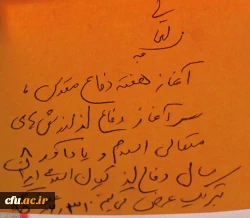 آغاز هفته دفاع مقدس،
سرآغاز دفاع از ارزش‌های
متعالی اسلام و یادآور ۸
سال دفاع از کیان اسلامی
تبریک عرض می‌کنم.
cfu.ac.ir